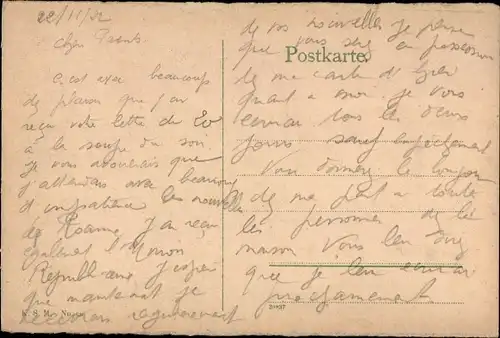 22/11/22
Cher Parents
C'est avec beaucoup
de plaisir que j'ai
reçu votre lettre du 20
à la soupe du soir.
Je vous avouerais que
j'attendais avec beaucoup
d'impatience les nouvelles
de Roanne J'ai reçu
également l'Union
Républicaine J'espère
que maintenant je
recevrais régulièrement
K. S. M.
Postkarte.
de vos nouvelles Je pense
que vous serez en possession
de ma carte d'hier
quant a moi. Je vous
écrirai tous les deux
jours sauf empêchement
Vous donnerez le
de ma part a toute
les personnes de la
maison Vous leur direz
que je leur écrirai
prochainement